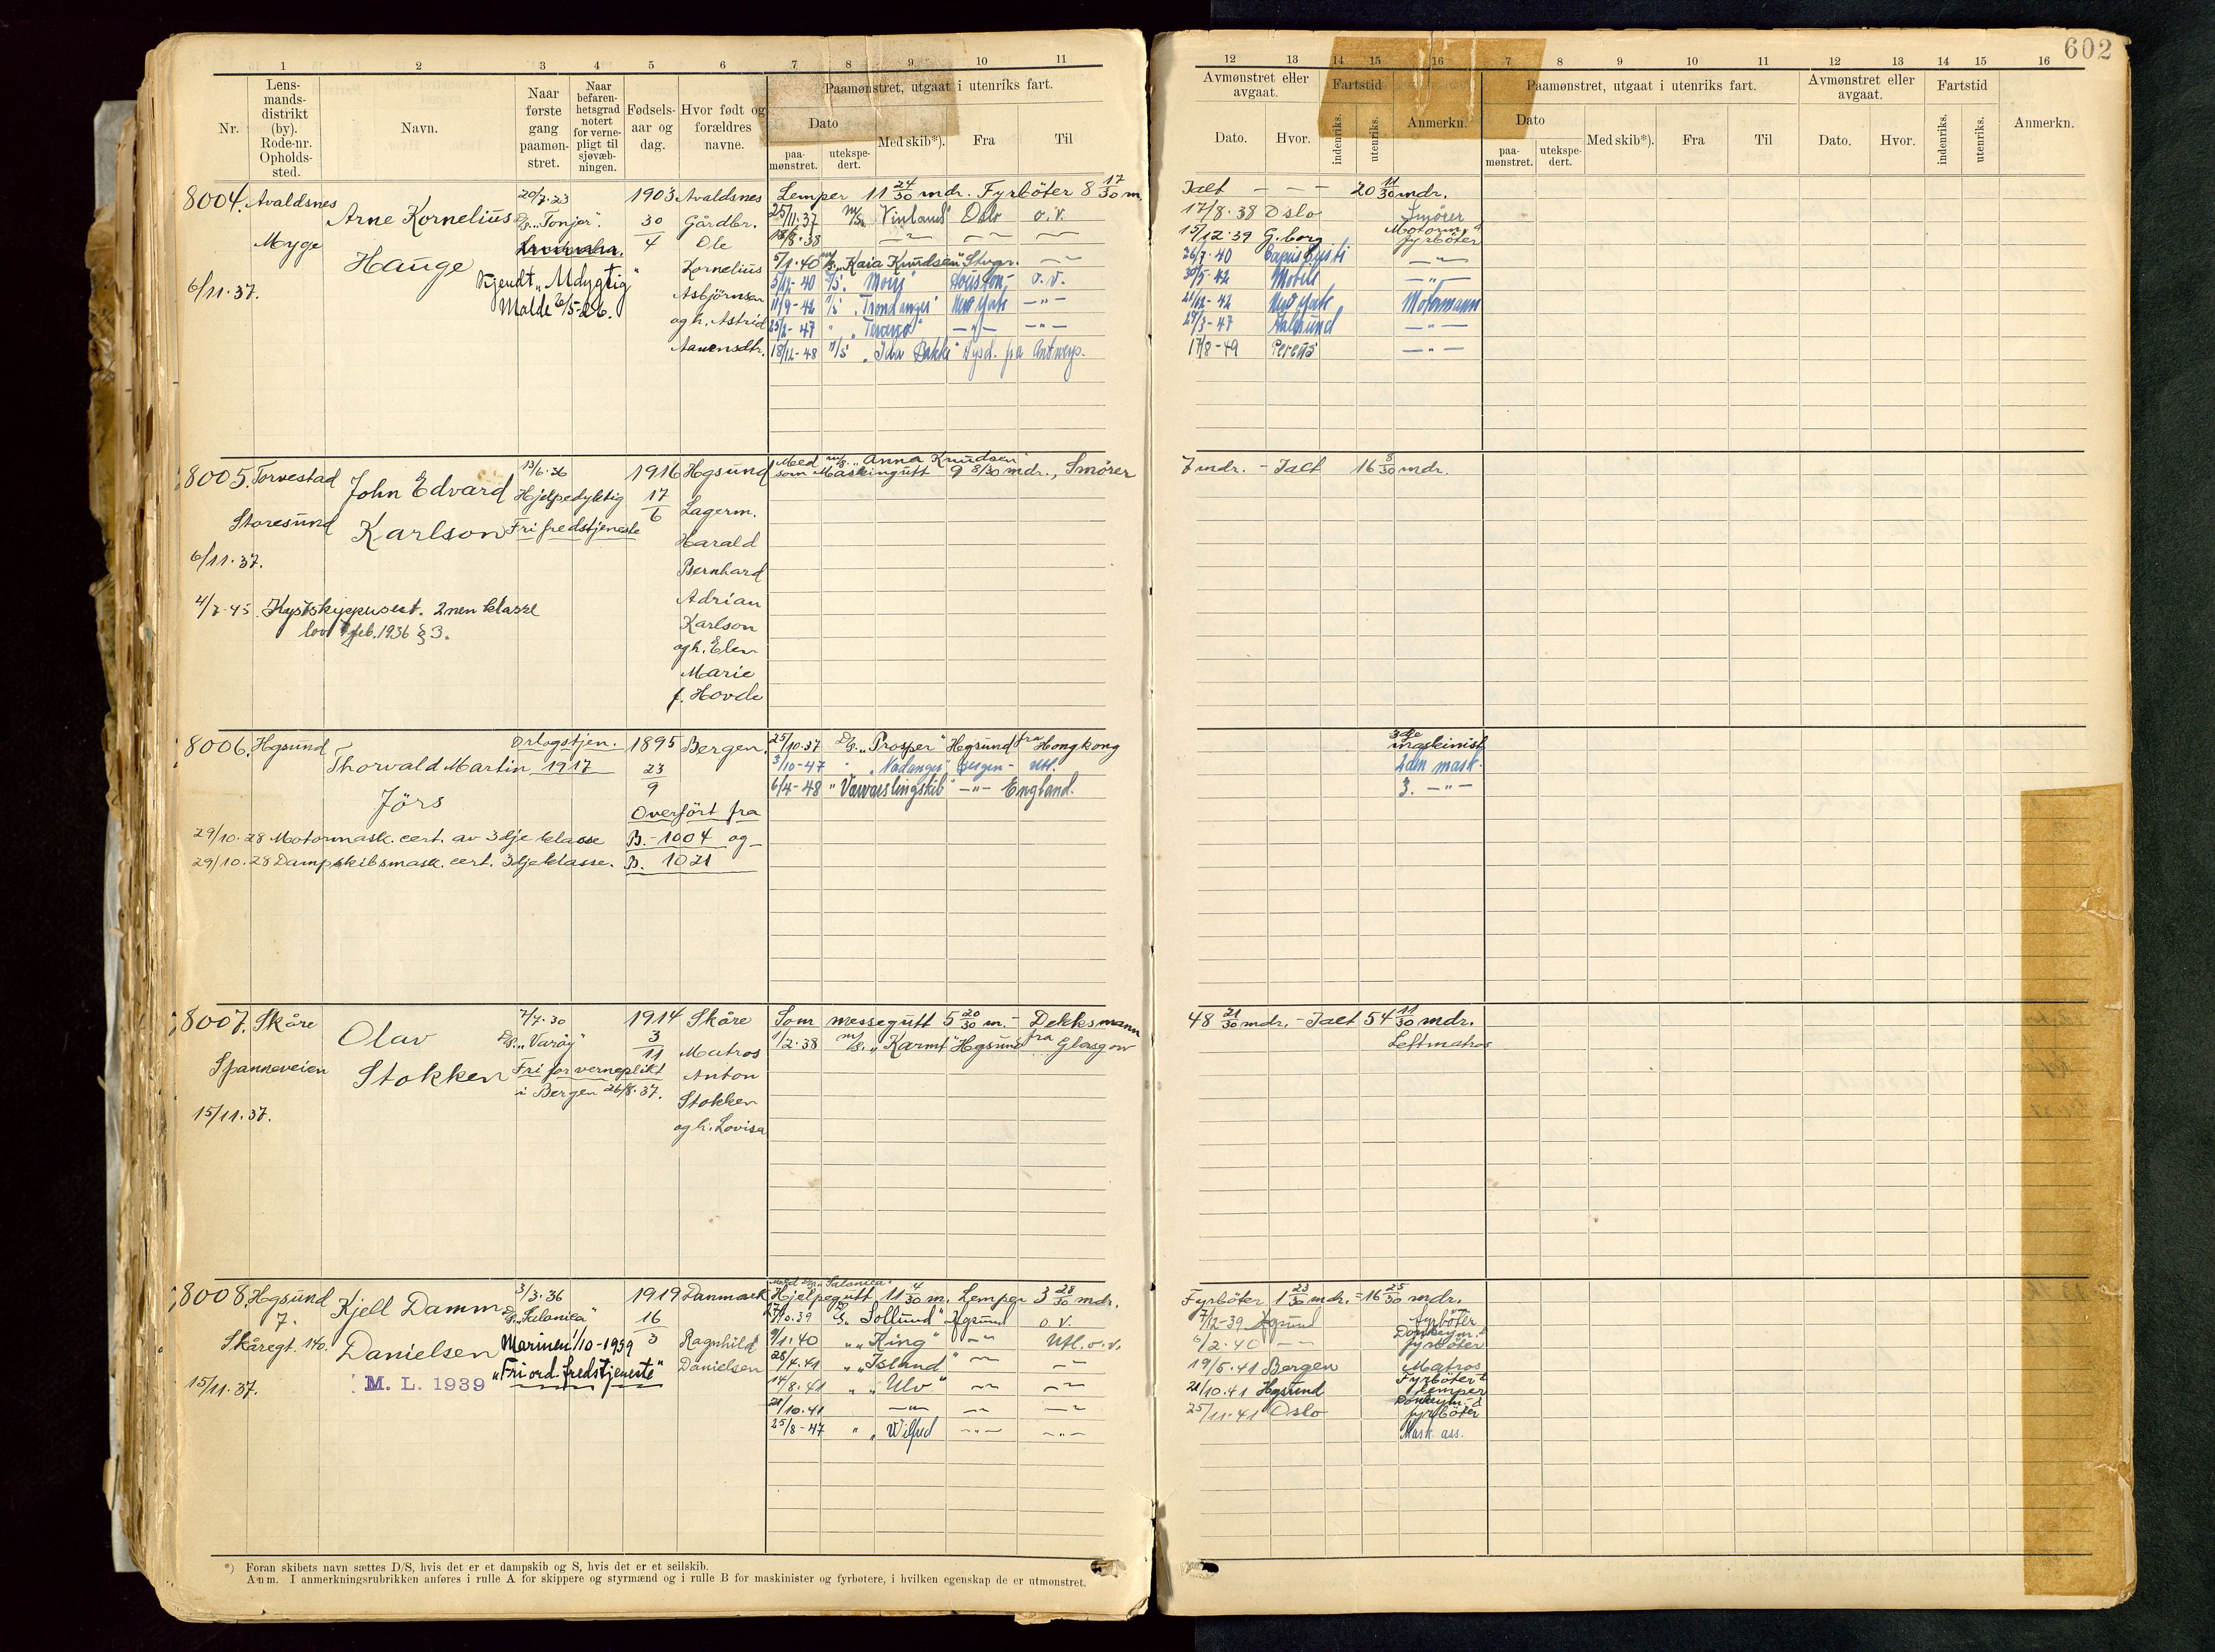 602
1 2 3 4 5 6 7 8 9 10 11
Nr.
Lens-
mands-
distrikt
(by).
Rode-nr.
Opholds-
sted.
Navn.
Naar
første
gang
paamøn-
stret.
Naar
befaren-
hetsgrad
notert
for verne-
pligt til
sjøvæb-
ningen.
Fødsels-
aar og
dag.
Hvor født og
forældres
navne.
Paamønstret, utgaat i utenriks fart.
Dato
paa-
mønstret.
utekspe-
dert.
Med skib*).
Fra
Til
12 13 14 15 16 7 8 9 10 11 12 13 14 15 16
Avmønstret eller
avgaat.
Dato. Hvor.
Fartstid
indenriks.
utenriks.
Anmerkn.
Paamønstret, utgaat i utenriks fart.
Dato
paa-
mønstret.
utekspe-
dert.
Med skib*).
Fra
Til
Avmønstret eller
avgaat.
Dato. Hvor.
Fartstid
indenriks.
utenriks.
Anmerkn.
8004. Avaldsnes
Myge
6/11.37.
Arne Kornelius
Hauge
20/7.23
D/S. „Tonjer".
Kjendt „Udygtig"
Molde 26/5-26.
1903
30/4
Avaldsnes
Gårdbr.
Ole
Kornelius
Asbjörnsen
og h. Astrid
Lemper 11 24/30 mdr. Fyrböter 8 17/30 m.
Ialt — — — 20 11/30 mdr.
25/11.37 m/s. „Vinland" Oslo o.v.
17/8.38 Oslo Smörer
18/8.38 —"— —"— —"—
15/12.39 G.borg
fyrböter
5/1.40 m/s. „Kaia Knudsen" Stvgr. —"—
26/7.40
5/12-40 Houston o.v.
30/5-42 Mobile —"—
11/9-42 New York —"—
21/12-42 New York Motormann
25/2-47 " —"— —"—
29/3-47 Aalesund —"—
18/12-48 M/S „Ida Bakke" Nysd. fra Antwerp.
17/8-49 —"—
8005. Torvestad
Storesund
6/11.37.
John Edvard
Karlson
13/6.36
Hjelpedyktig
Fri fredstjeneste
1916
17/6
Hgsund
Lagerm.
Harald
Bernhard
Adrian
Karlson
og h. Elen
Marie
f. Hovde
Med m/s. „Anna Knudsen"
som Maskingutt 9 8/30 mdr., Smörer
7 mdr. - Ialt 16 8/30 mdr.
4/7-45. Kystskippersert. 2nen klasse
lov feb. 1936 § 3.
8006. Hgsund
Thorvald Martin
Jörs
Orlogstjen.
1917
1895
23/9
Bergen.
Overfört fra
B.-1004 og
B. 1021
29/10.28 Motormask. cert. av 3dje klasse
29/10.28 Dampskibsmask. cert. 3dje klasse.
25/10.37 D/S. „Prosper" Hgsund fra Hongkong
3dje
maskinist
3/10-47 " Bergen - Utl.
2den mask.
6/4-48 " —"— England.
3. —"—
8007. Skåre
Spanneveien
15/11.37.
Olav
Stokken
7/7.30
D/S. „Varöy"
Fri for verneplikt
i Bergen 26/8.37.
1914
3/11
Skåre
Matros
Anton
Stokken
og h. Lovisa
Som messegutt 5 20/30 m. - Dekksmann
48 21/30 mdr. - Ialt 54 11/30 mdr.
1/2.38 m/s. „Karmt" Hgsund fra Glasgow
Lettmatros
8008. Hgsund
7.
Skåregt. 140.
15/11.37.
Kjell Damm
Danielsen
M. L. 1939
3/3.36
D/S. „Salonica"
Marinen 1/10-1939
„Fri ord. fredstjeneste"
1919
16/3
Danmark
Ragnhild
Danielsen
Med D/S „Salonica"
Hjelpegutt 11 4/30 m. Lemper 3 28/30 mdr.
Fyrböter 1 23/30 mdr. = 16 25/30 mdr.
17/10.39 D/S. „Sollund" Hgsund o.v.
7/12-39 Hgsund fyrböter
9/1.40 „ „King" —"— Utl. o.v.
6/2.40 —"— Donkeym. &
fyrböter
28/4.41 „ „Island" —"— —"—
19/5.41 Bergen Matros
14/8.41 „ „Ulv" —"— —"—
21/10.41 Hgsund Fyrböter &
lemper
21/10.41 —"— —"— —"—
25/11.41 Oslo Donkeym. &
fyrböter
25/8-47 „ „Wilfred —"— —"—
Mask. ass.
*) Foran skibets navn sættes D/S, hvis det er et dampskib og S, hvis det er et seilskib.
Anm. I anmerkningsrubrikken anføres i rulle A for skippere og styrmænd og i rulle B for maskinister og fyrbøtere, i hvilken egenskap de er utmønstret.